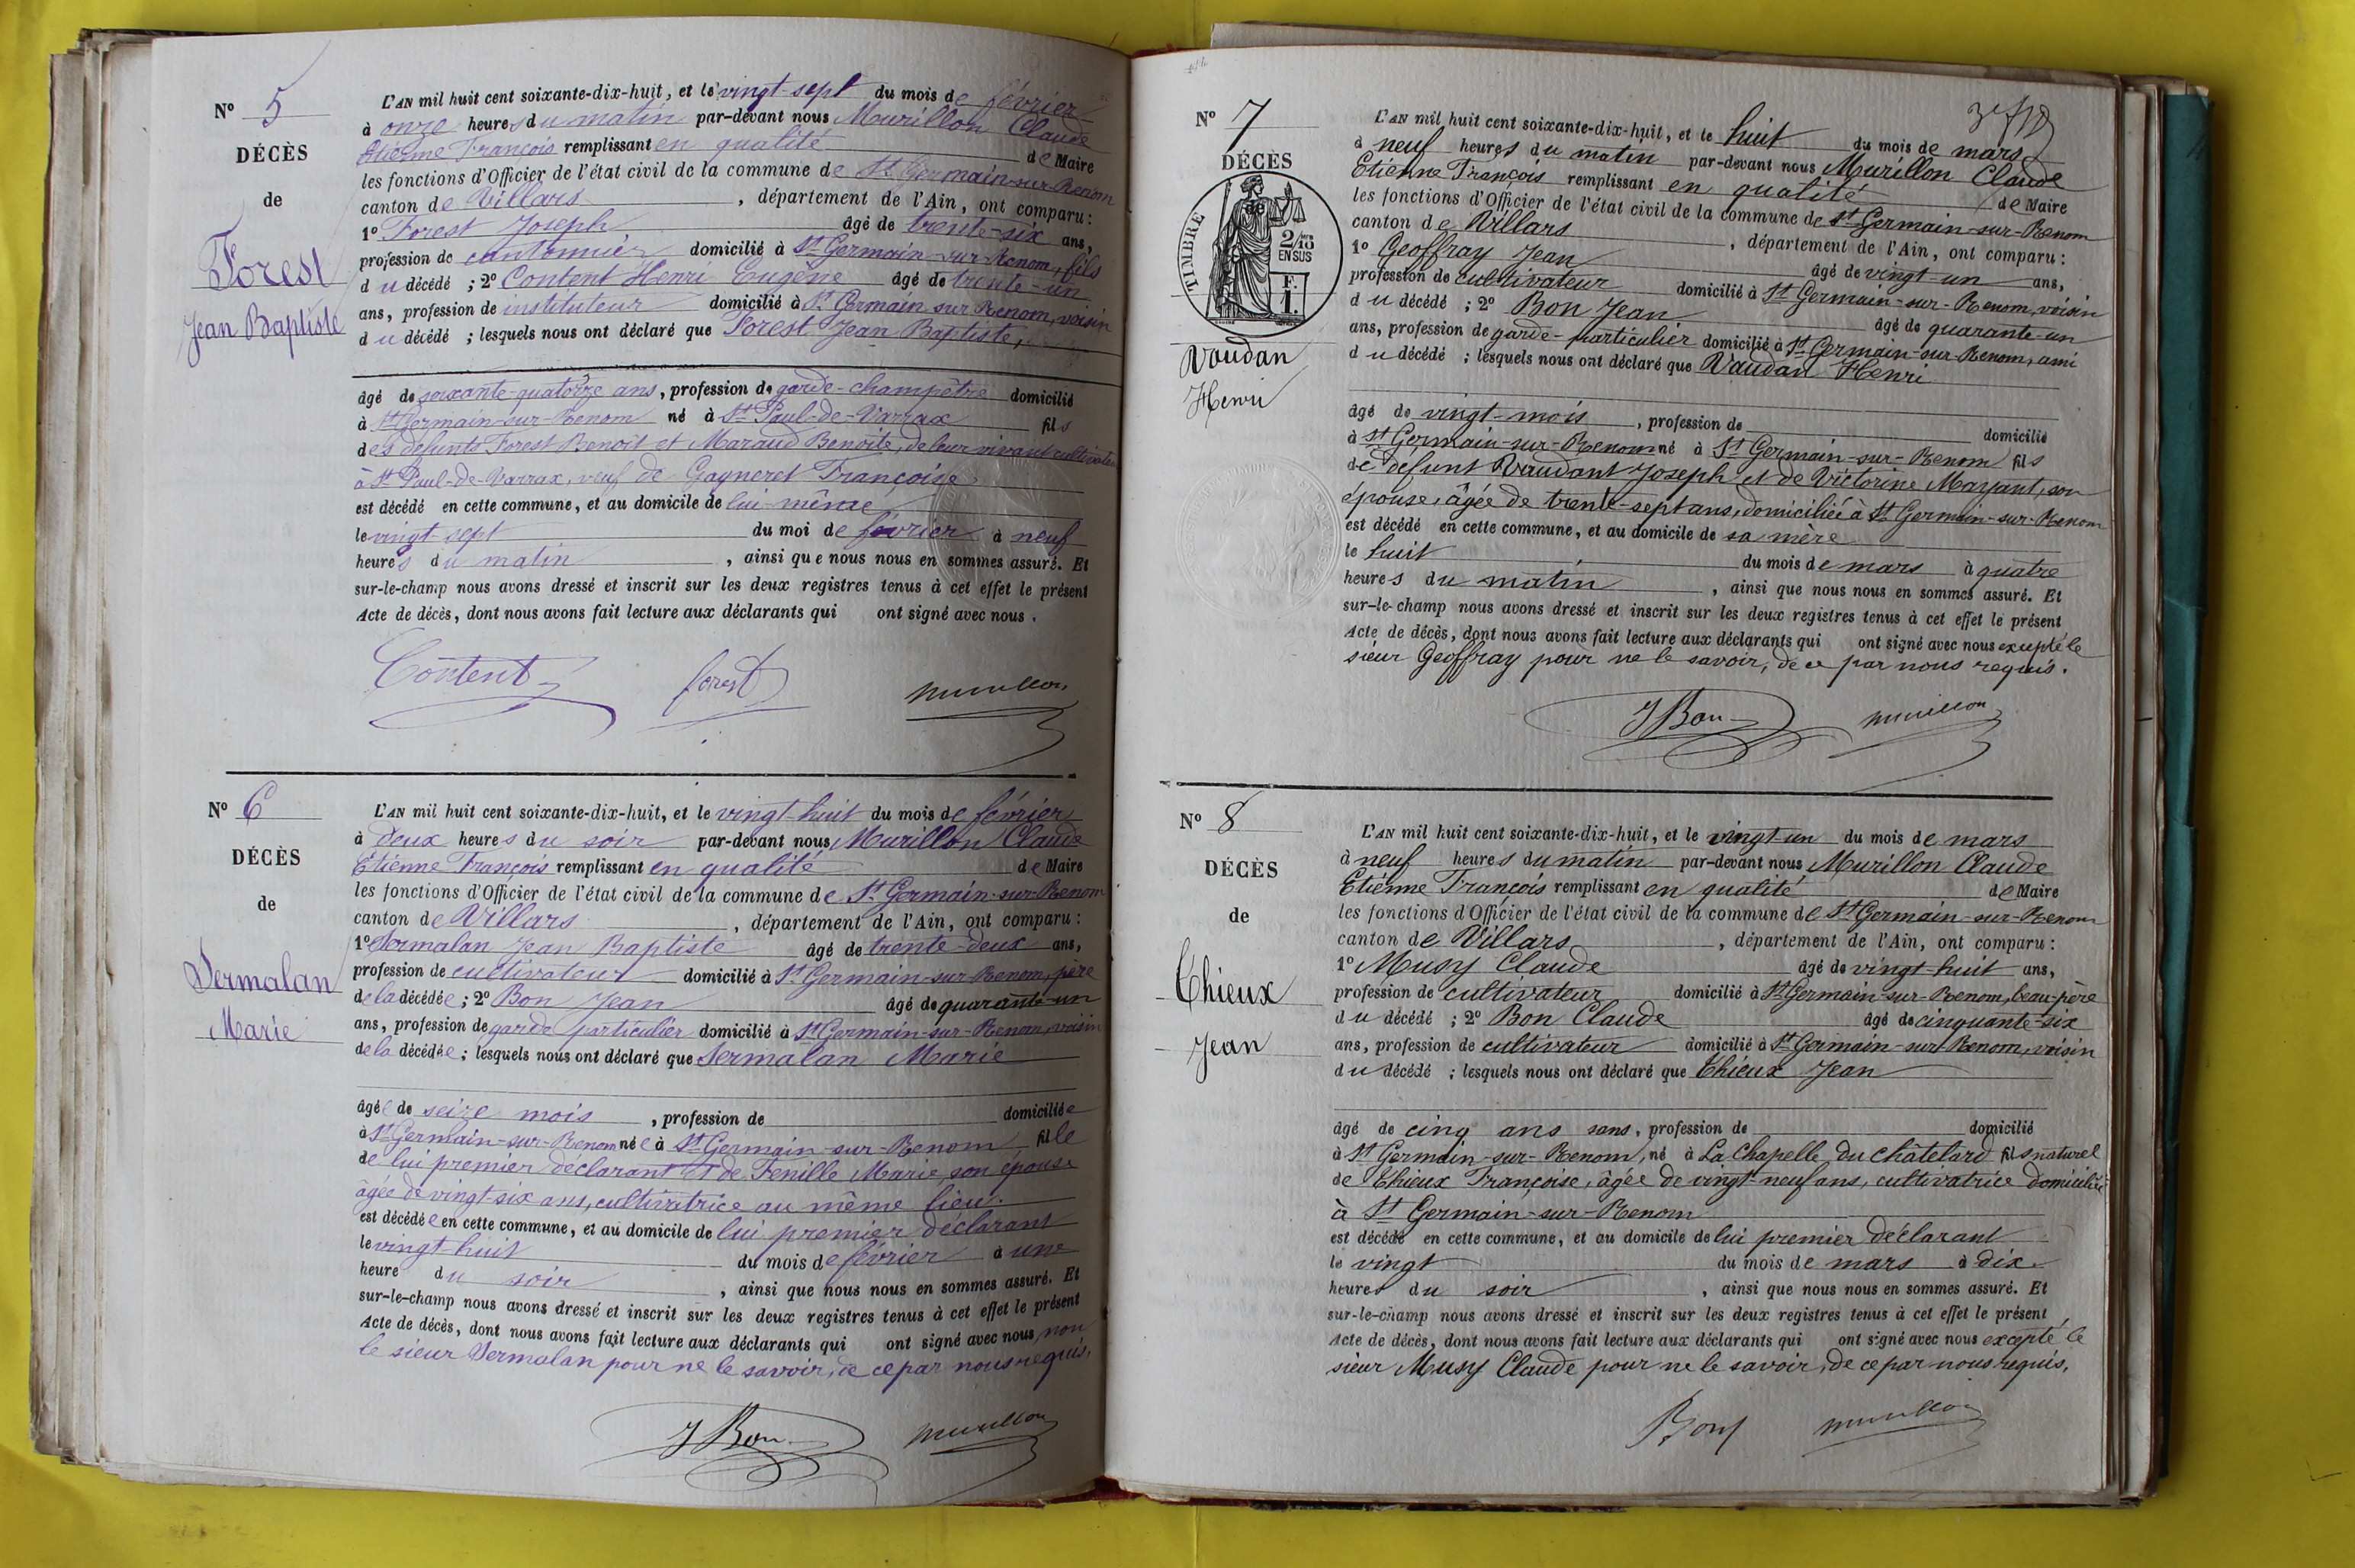 N° 5
DÉCÈS
de
Forest
Jean Baptiste
L'AN mil huit cent soixante-dix-huit, et le vingt-sept du mois de février
à onze heures du matin par-devant nous Murillon Claude
Etienne François remplissant en qualité de Maire
les fonctions d'Officier de l'état civil de la commune de St Germain-sur-Renom
canton de Villars, département de l'Ain, ont comparu :
1° Forest Joseph âgé de trente-six ans,
profession de cantonnier domicilié à St Germain-sur-Renom, fils
du décédé ; 2° Content Henri Eugène âgé de trente-un
ans, profession de instituteur domicilié à St Germain sur Renom, voisin
du décédé ; lesquels nous ont déclaré que Forest Jean Baptiste,
âgé de soixante-quatorze ans, profession de garde-champêtre domicilié
à St Germain-sur-Renom né à St Paul-de-Varrax fils
des défunts Forest Benoit et Maraud Benoite, de leur vivant cultivateurs
à St Paul-de-Varrax, veuf de Gagneret Françoise
est décédé en cette commune, et au domicile de lui-même
le vingt-sept du moi de février à neuf
heures du matin, ainsi que nous nous en sommes assuré. Et
sur-le-champ nous avons dressé et inscrit sur les deux registres tenus à cet effet le présent
Acte de décès, dont nous avons fait lecture aux déclarants qui ont signé avec nous.
Content forest murillon
N° 6
DÉCÈS
de
Sermalan
Marie
L'AN mil huit cent soixante-dix-huit, et le vingt-huit du mois de février
à deux heures du soir par-devant nous Murillon Claude
Etienne François remplissant en qualité de Maire
les fonctions d'Officier de l'état civil de la commune de St Germain-sur-Renom
canton de Villars, département de l'Ain, ont comparu :
1° Sermalan Jean Baptiste âgé de trente-deux ans,
profession de cultivateur domicilié à St Germain-sur-Renom, père
de la décédée ; 2° Bon Jean âgé de quarante-un
ans, profession de garde particulier domicilié à St Germain-sur-Renom, voisin
de la décédée ; lesquels nous ont déclaré que Sermalan Marie
âgée de seize mois, profession de domiciliée
à St Germain-sur-Renom née à St Germain-sur-Renom fille
de lui premier déclarant et de Fenille Marie, son épouse
âgée de vingt six ans, cultivatrice au même lieu.
est décédée en cette commune, et au domicile de lui premier déclarant
le vingt-huit du mois de février à une
heure du soir, ainsi que nous nous en sommes assuré. Et
sur-le-champ nous avons dressé et inscrit sur les deux registres tenus à cet effet le présent
Acte de décès, dont nous avons fait lecture aux déclarants qui ont signé avec nous, non
le sieur Sermalan pour ne le savoir, de ce par nous requis.
J Bon murillon
N° 7
DÉCÈS
de
TIMBRE
2/10 EN SUS
F. 1.
Vaudan
Henri
L'AN mil huit cent soixante-dix-huit, et le huit du mois de mars
à neuf heures du matin par-devant nous Murillon Claude
Etienne François remplissant en qualité de Maire
les fonctions d'Officier de l'état civil de la commune de St Germain-sur-Renom
canton de Villars, département de l'Ain, ont comparu :
1° Geoffray Jean âgé de vingt-un ans,
profession de cultivateur domicilié à St Germain-sur-Renom, voisin
du décédé ; 2° Bon Jean âgé de quarante-un
ans, profession de garde-particulier domicilié à St Germain-sur-Renom, ami
du décédé ; lesquels nous ont déclaré que Vaudan Henri
âgé de vingt-mois, profession de domicilié
à St Germain-sur-Renom né à St Germain-sur-Renom fils
de défunt Vaudant Joseph et de Victorine Mayant, son
épouse, âgée de trente-sept ans, domiciliée à St Germain-sur-Renom
est décédé en cette commune, et au domicile de sa mère
le huit du mois de mars à quatre
heures du matin, ainsi que nous nous en sommes assuré. Et
sur-le-champ nous avons dressé et inscrit sur les deux registres tenus à cet effet le présent
Acte de décès, dont nous avons fait lecture aux déclarants qui ont signé avec nous excepté le
sieur Geoffray pour ne le savoir, de ce par nous requis.
J Bon murillon
N° 8
DÉCÈS
de
Thieux
Jean
L'AN mil huit cent soixante-dix-huit, et le vingt-un du mois de mars
à neuf heures du matin par-devant nous Murillon Claude
Etienne François remplissant en qualité de Maire
les fonctions d'Officier de l'état civil de la commune de St Germain-sur-Renom
canton de Villars, département de l'Ain, ont comparu :
1° Musy Claude âgé de vingt-huit ans,
profession de cultivateur domicilié à St Germain-sur-Renom, beau-père
du décédé ; 2° Bon Claude âgé de cinquante-six
ans, profession de cultivateur domicilié à St Germain-sur-Renom, voisin
du décédé ; lesquels nous ont déclaré que Thieux Jean
âgé de cinq ans sans, profession de domicilié
à St Germain-sur-Renom, né à La Chapelle du Châtelard fils naturel
de Thieux Françoise, âgée de vingt-neuf ans, cultivatrice domiciliée
à St Germain-sur-Renom
est décédé en cette commune, et au domicile de lui premier déclarant
le vingt du mois de mars à dix
heures du soir, ainsi que nous nous en sommes assuré. Et
sur-le-champ nous avons dressé et inscrit sur les deux registres tenus à cet effet le présent
Acte de décès, dont nous avons fait lecture aux déclarants qui ont signé avec nous excepté le
sieur Musy Claude pour ne le savoir, de ce par nous requis.
Bon murillon